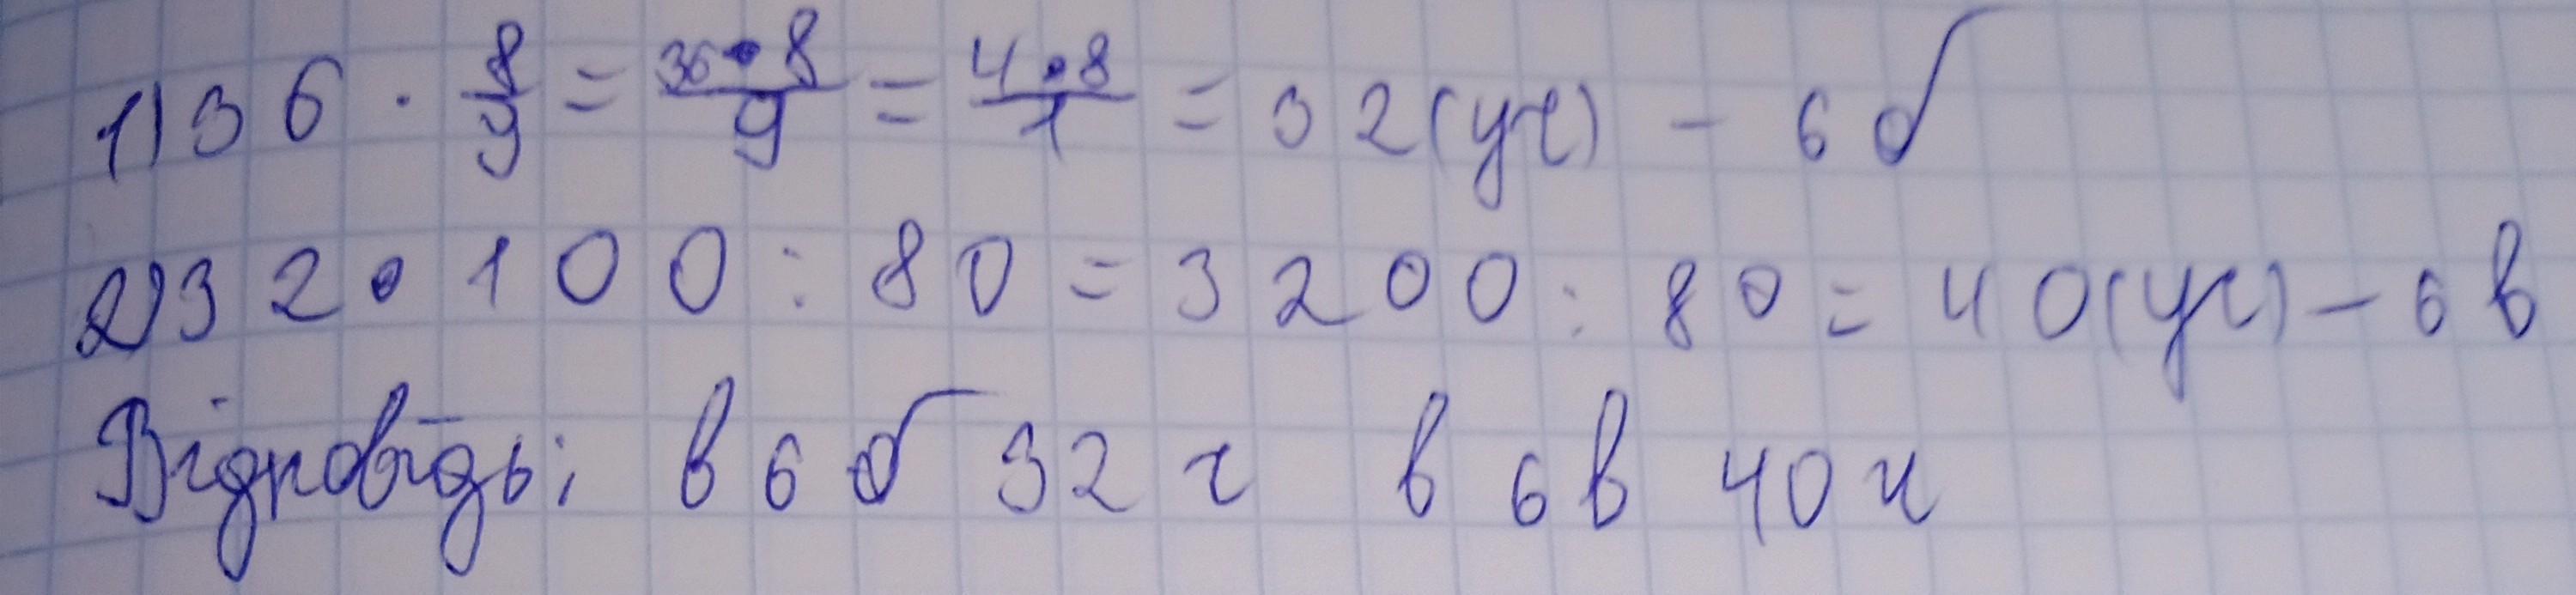 1) 36 · 8/9 = 36·8/9 = 4·8/1 = 32 (уч) - 6 б
2) 32 · 100 : 80 = 3200 : 80 = 40 (уч) - 6 в
Відповідь: в 6 б 32 ч в 6 в 40 ч